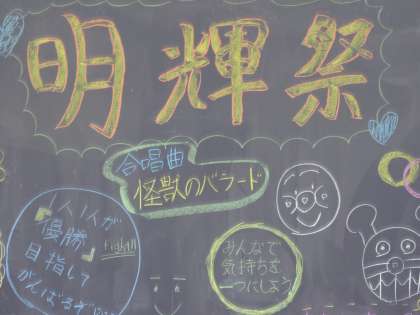 明輝祭
合唱曲
怪獣のバラード
1人1人が
『優勝』
目指して
がんばるぞ
fight!!
みんなで
気持ちを
一つにしよう